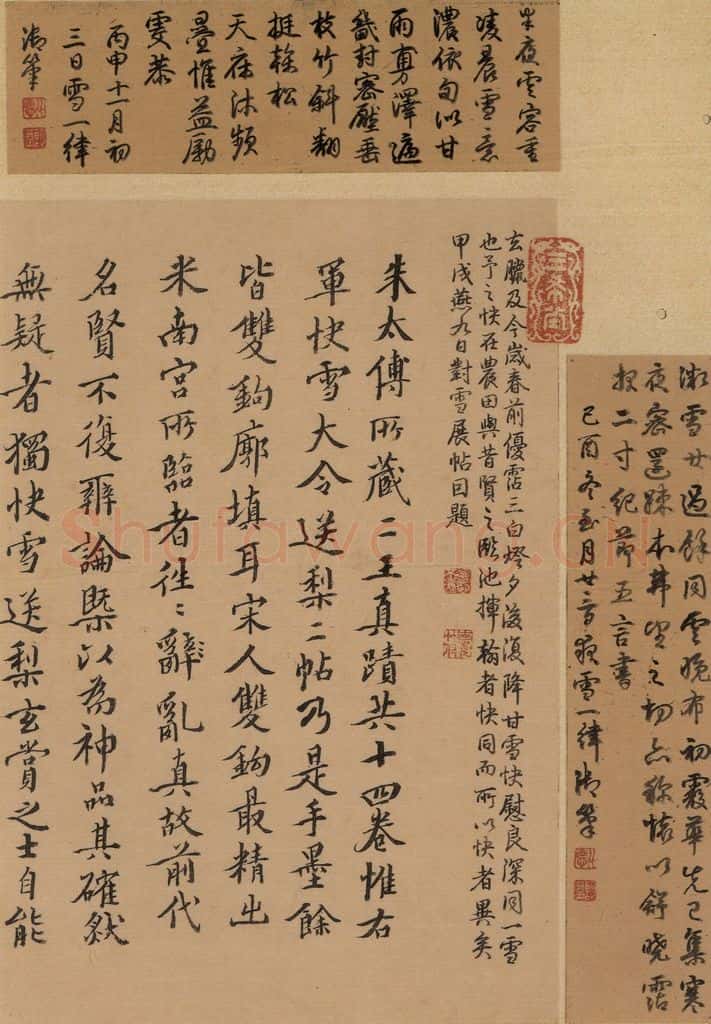 半夜雲容重
凌晨雪意
濃依旬似甘
雨敷澤遍
畿封密壓垂
枝竹斜翻
挺榦松
天庥沐頻
疊惟益勵
虔恭
丙申十一月初
三日雪一律
御筆
三希堂
微雪廿過餘同雲晚布初霰華先已集寒
夜密還疎本弗望之切亦稱懷以舒曉霑
報二寸紀節五言書
己酉冬至月廿夜雪一律御筆
玄臘及今歲春前優霑三白燈夕後復降甘雪快慰良深同一雪
也予之快在農田與昔賢之臨池揮翰者快同而所以快者異矣
甲戌燕九日對雪展帖因題
朱太傅所藏二王真蹟共十四卷惟右
軍快雪大令送梨二帖乃是手墨餘
皆雙鉤廓填耳宋人雙鉤最精出
米南宮所臨者往〻辭亂真故前代
名賢不復辨論槩以為神品其確然
無疑者獨快雪送梨玄賞之士自能
Shufawang.CN